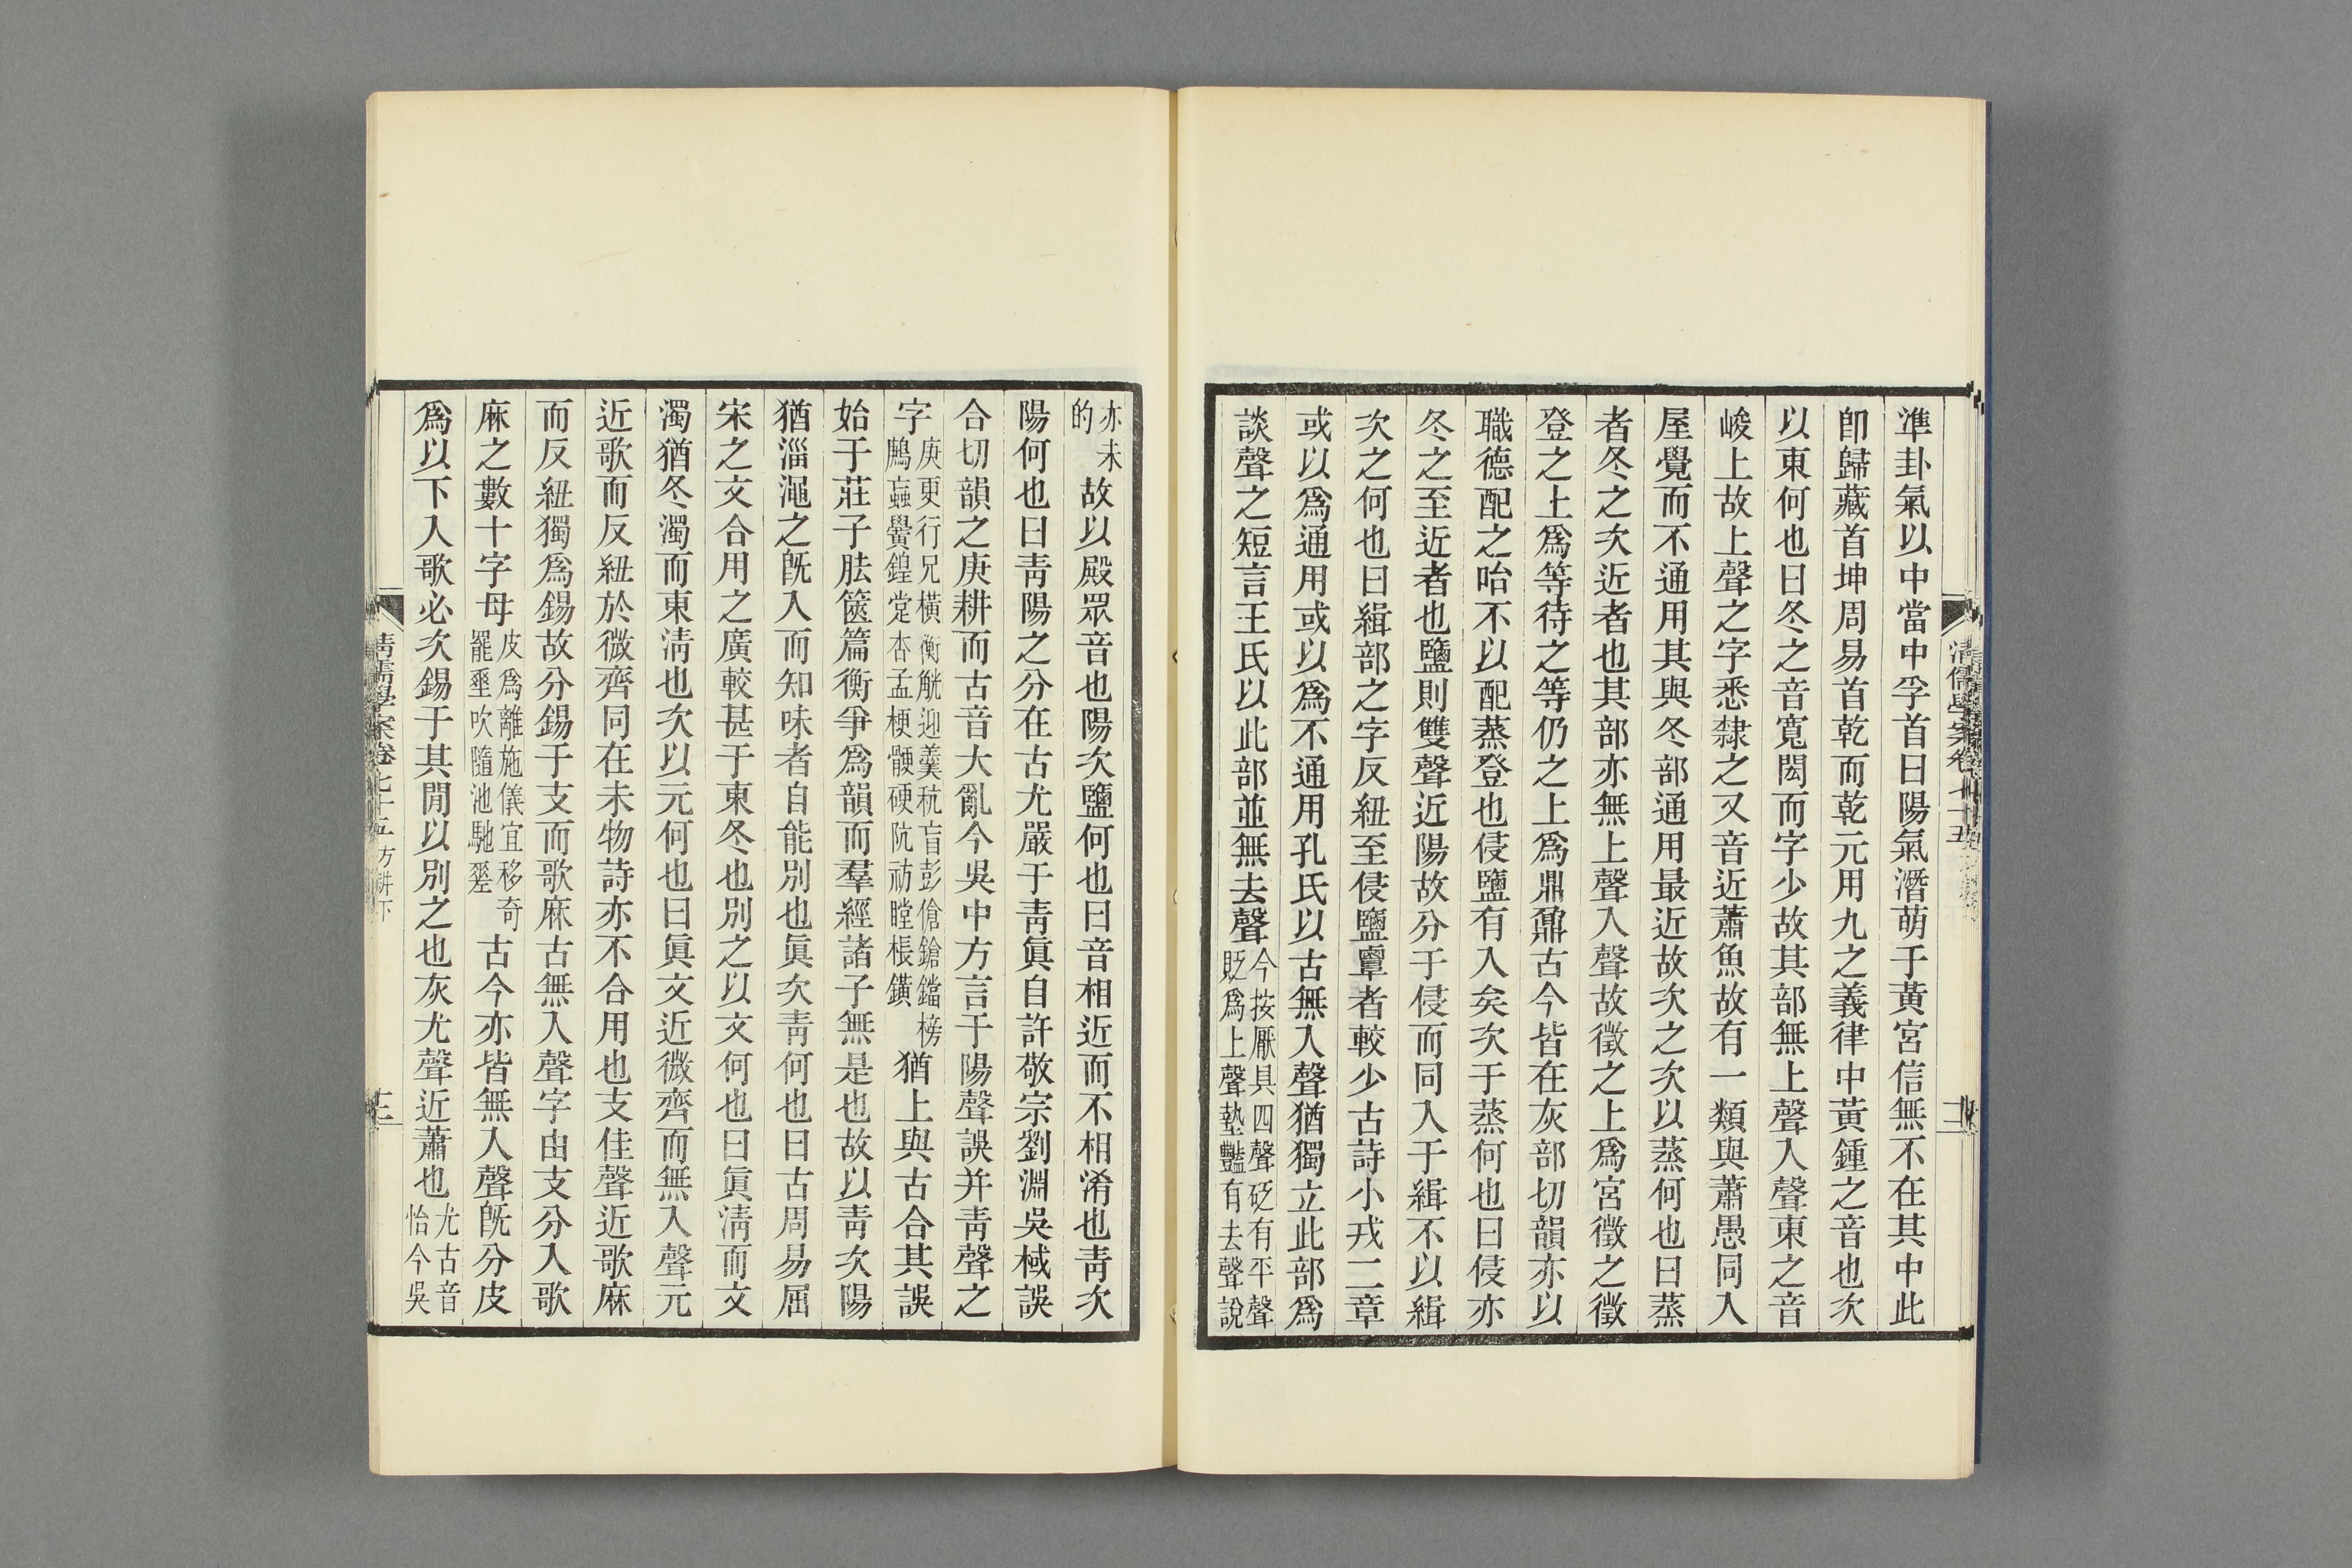 準卦氣以中當中孚首曰陽氣潛萌于黃宮信無不在其中此
卽歸藏首坤周易首乾而乾元用九之義律中黃鍾之音也次
以東何也曰冬之音寬閎而字少故其部無上聲入聲東之音
峻上故上聲之字悉隸之又音近蕭魚故有一類與蕭愚同入
屋覺而不通用其與冬部通用最近故次之次以蒸何也曰蒸
者冬之次近者也其部亦無上聲入聲故徵之上爲宮徵之徵
登之上爲等待之等仍之上爲鼎鼐古今皆在灰部切韻亦以
職德配之咍不以配蒸登也侵鹽有入矣次于蒸何也曰侵亦
冬之至近者也鹽則雙聲近陽故分于侵而同入于緝不以緝
次之何也曰緝部之字反紐至侵鹽覃者較少古詩小戎二章
或以爲通用或以爲不通用孔氏以古無入聲猶獨立此部爲
談聲之短言王氏以此部並無去聲今按厭具四聲砭有平聲貶爲上聲墊豔有去聲說
清儒學案卷七十五
亦未的故以殿眾音也陽次鹽何也曰音相近而不相淆也靑次
陽何也曰靑陽之分在古尤嚴于靑眞自許敬宗劉淵吳棫誤
合切韻之庚耕而古音大亂今吳中方言于陽聲誤并靑聲之
字庚更行兄橫衡觥迎羹秔盲彭傖鎗鐺榜鷴蝱黌鍠堂杏孟梗骾硬阬祊瞠棖鐄猶上與古合其誤
始于莊子胠篋篇衡爭爲韻而羣經諸子無是也故以靑次陽
猶淄澠之旣入而知味者自能別也眞次靑何也曰古周易屈
宋之文合用之廣較甚于東冬也別之以文何也曰眞淸而文
濁猶冬濁而東淸也次以元何也曰眞文近微齊而無入聲元
近歌而反紐於微齊同在未物詩亦不合用也支佳聲近歌麻
而反紐獨爲錫故分錫于支而歌麻古無入聲字由支分入歌
麻之數十字母皮爲離施儀宜移奇罷壐吹隨池馳壐古今亦皆無入聲旣分皮
爲以下入歌必次錫于其閒以別之也灰尤聲近蕭也尤古音怡今吳
清儒學案卷七十五 方耕下